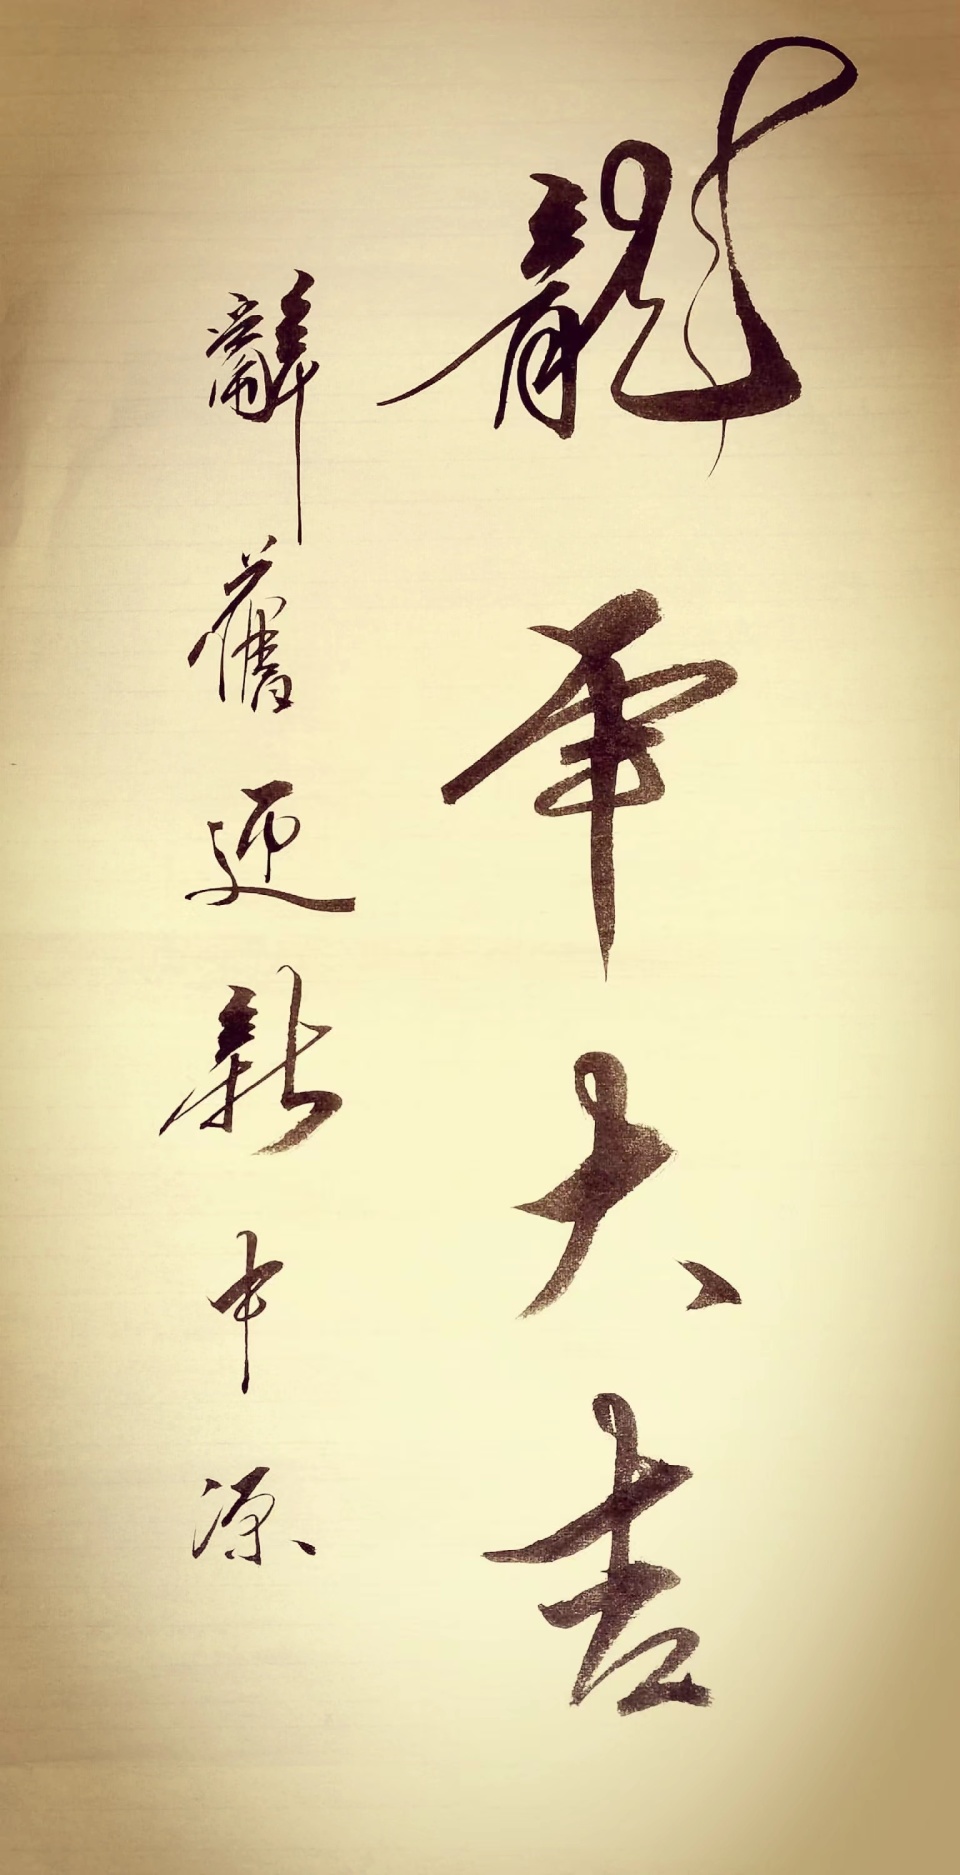 龍年大吉
辭舊迎新中源